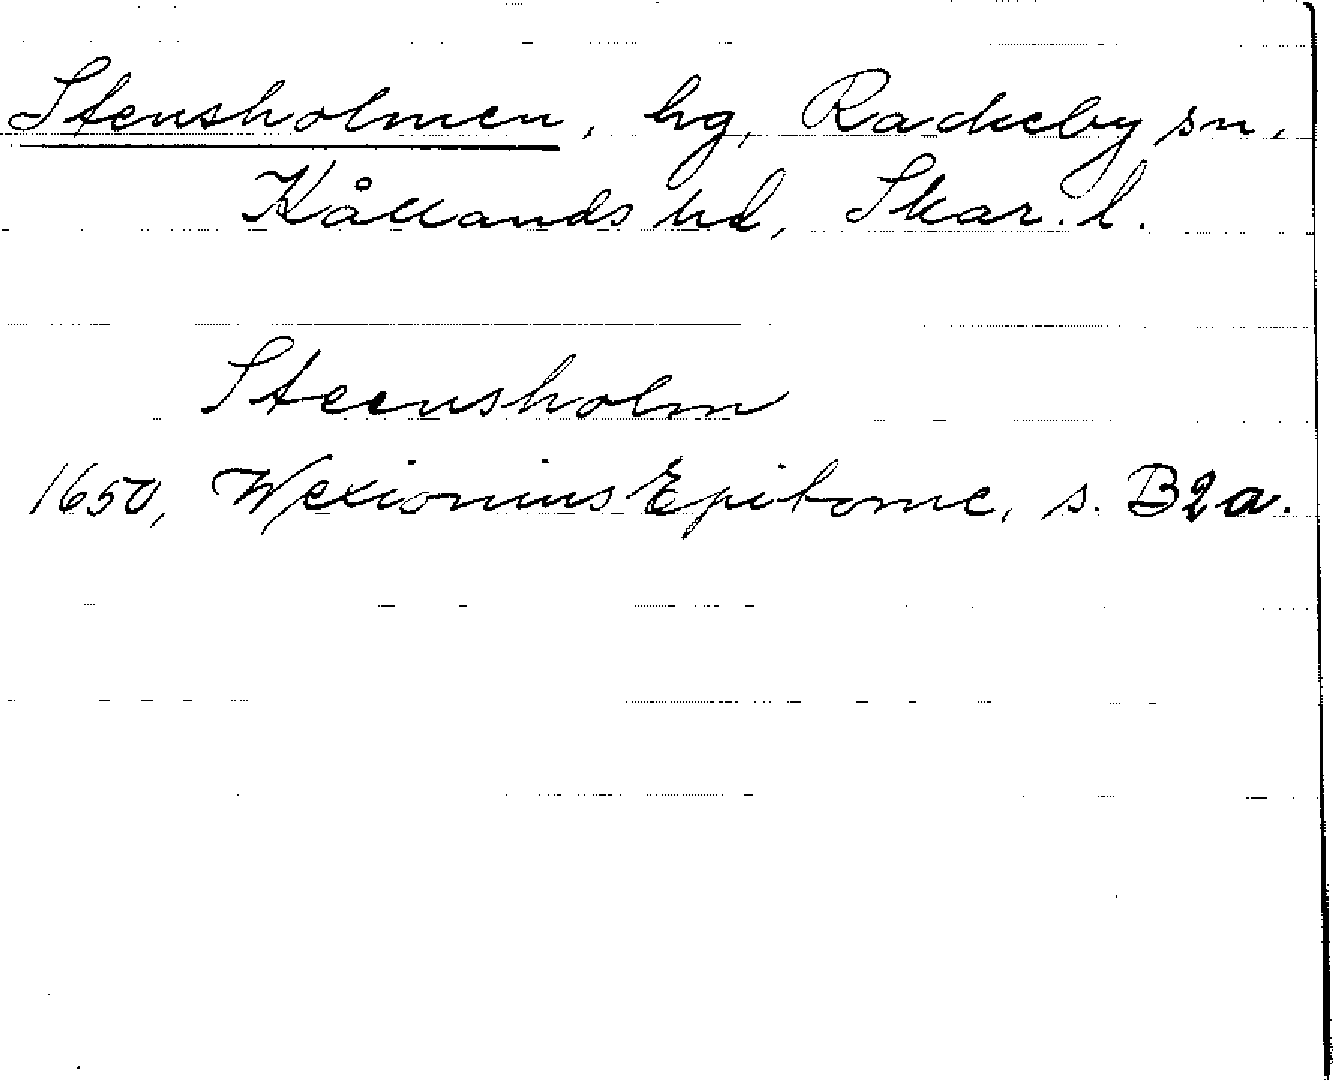 Stensholmen, hg, Rackeby sn.
Kållands hd, Skar. l.
Steensholm
1650, Wexionius Epitome, s. B2a.